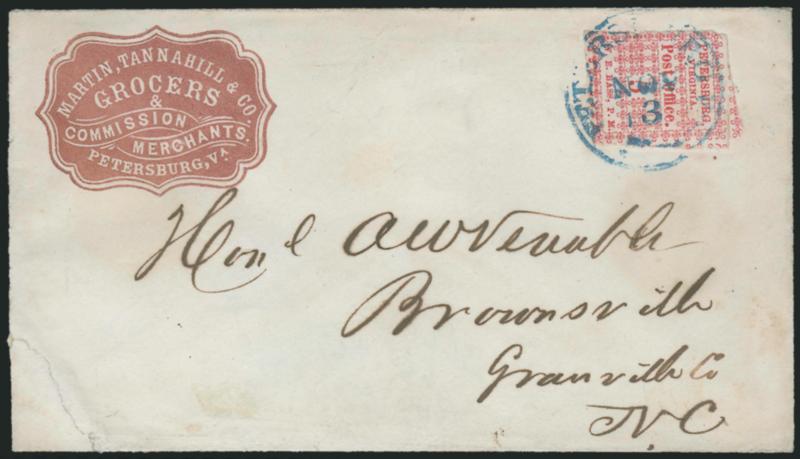 MARTIN, TANNAHILL & CO.
GROCERS
&
COMMISSION
MERCHANTS.
PETERSBURG, VA
PETERSBURG
VIRGINIA.
Post Office.
5
W. E. BASS, P. M.
NOV
13
Honl AWVenable
Brownsville
Granville Co
N.C